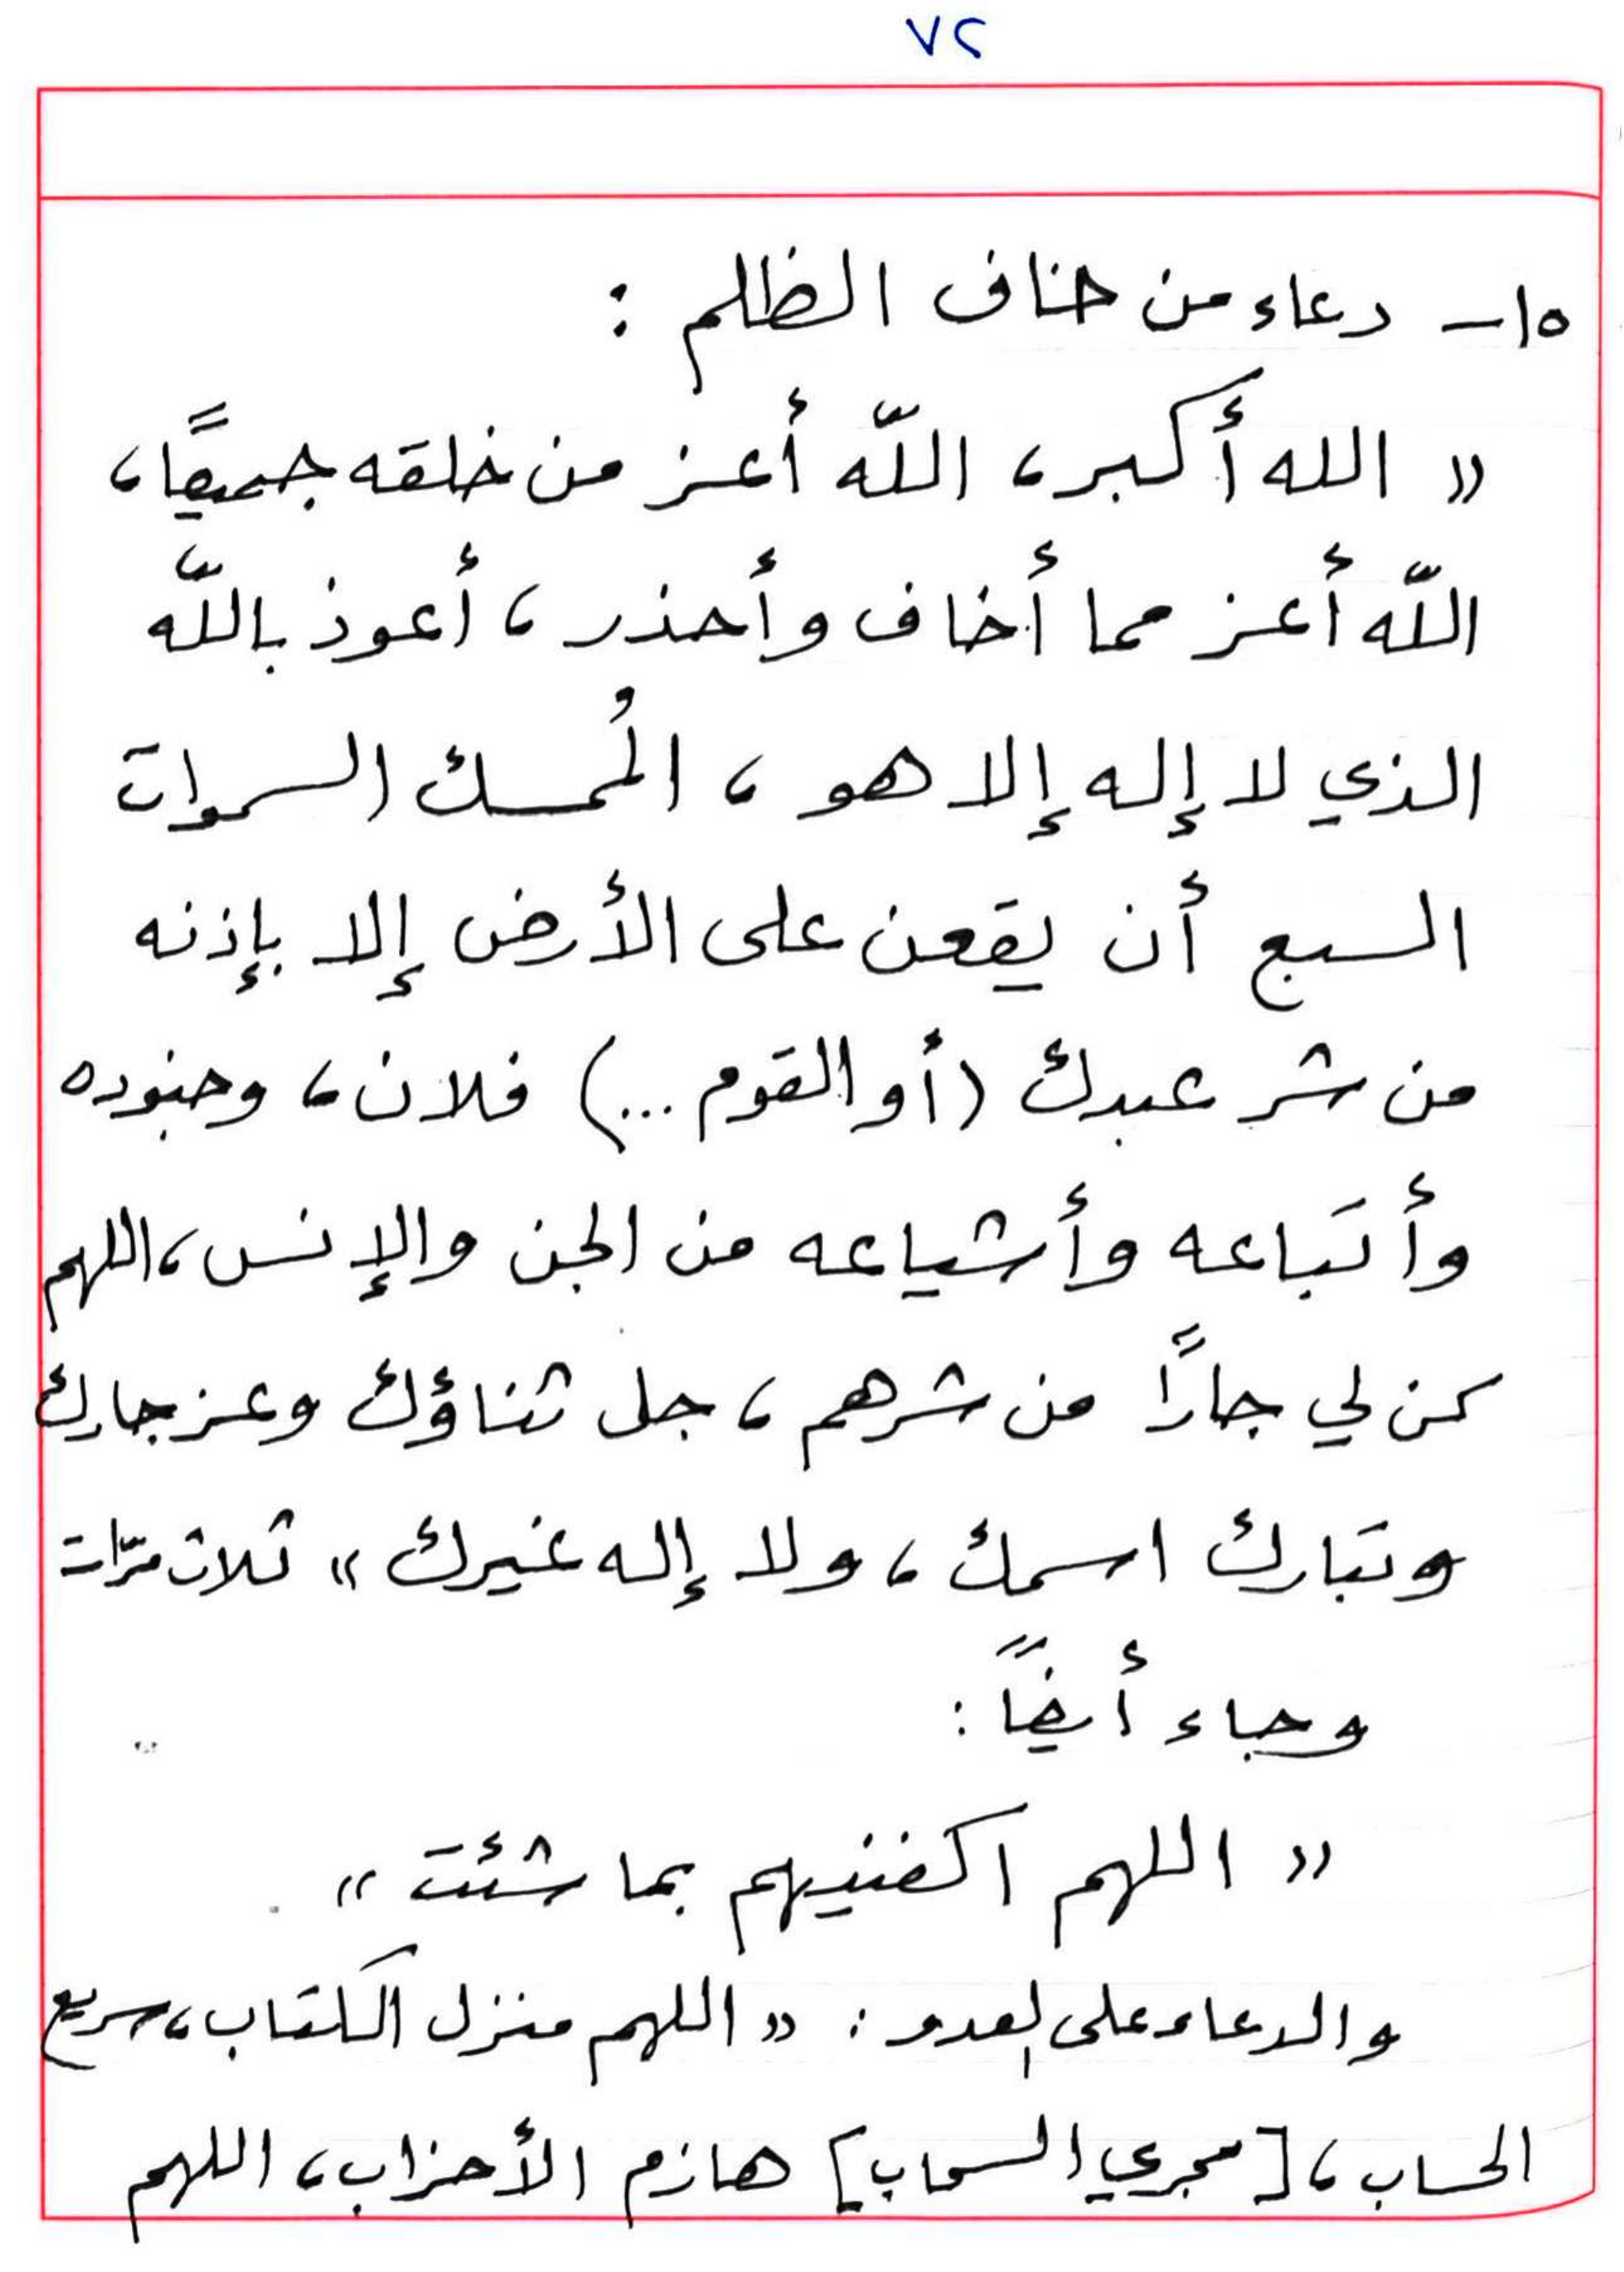 ٧٢
١٥- دعاء من خاف الظلم :
« الله أكبر، اللّه أعز من خلقه جميعًا،
اللّه أعز مما أخاف وأحذر، أعوذ باللّه
الذي لا إله إلا هو، المُمسك السموات
السبع أن يقعن على الأرض إلا بإذنه
من شر عبدك (أو القوم ...) فلان، وجنوده
وأتباعه وأشياعه من الجن والإنس، اللهم
كن لي جارًا من شرهم، جل ثناؤك وعز جارك
وتبارك اسمك، ولا إله غيرك » ثلاث مرّات
وجاء أيضًا :
« اللهم اكفنيهم بما شئت »
والدعاء على العدو : « اللهم منزل الكتاب، سريع
الحساب، [مجري السحاب] هازم الأحزاب، اللهم